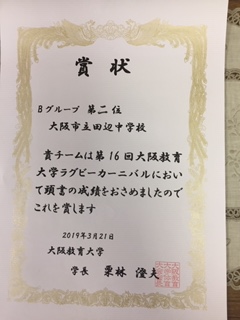 賞状
Bグループ 第二位
大阪市立田辺中学校
貴チームは第16回大阪教育
大学ラグビーカーニバルにおい
て頭書の成績をおさめましたので
これを賞します
2019年3月21日
大阪教育大学
学長 栗林 澄夫